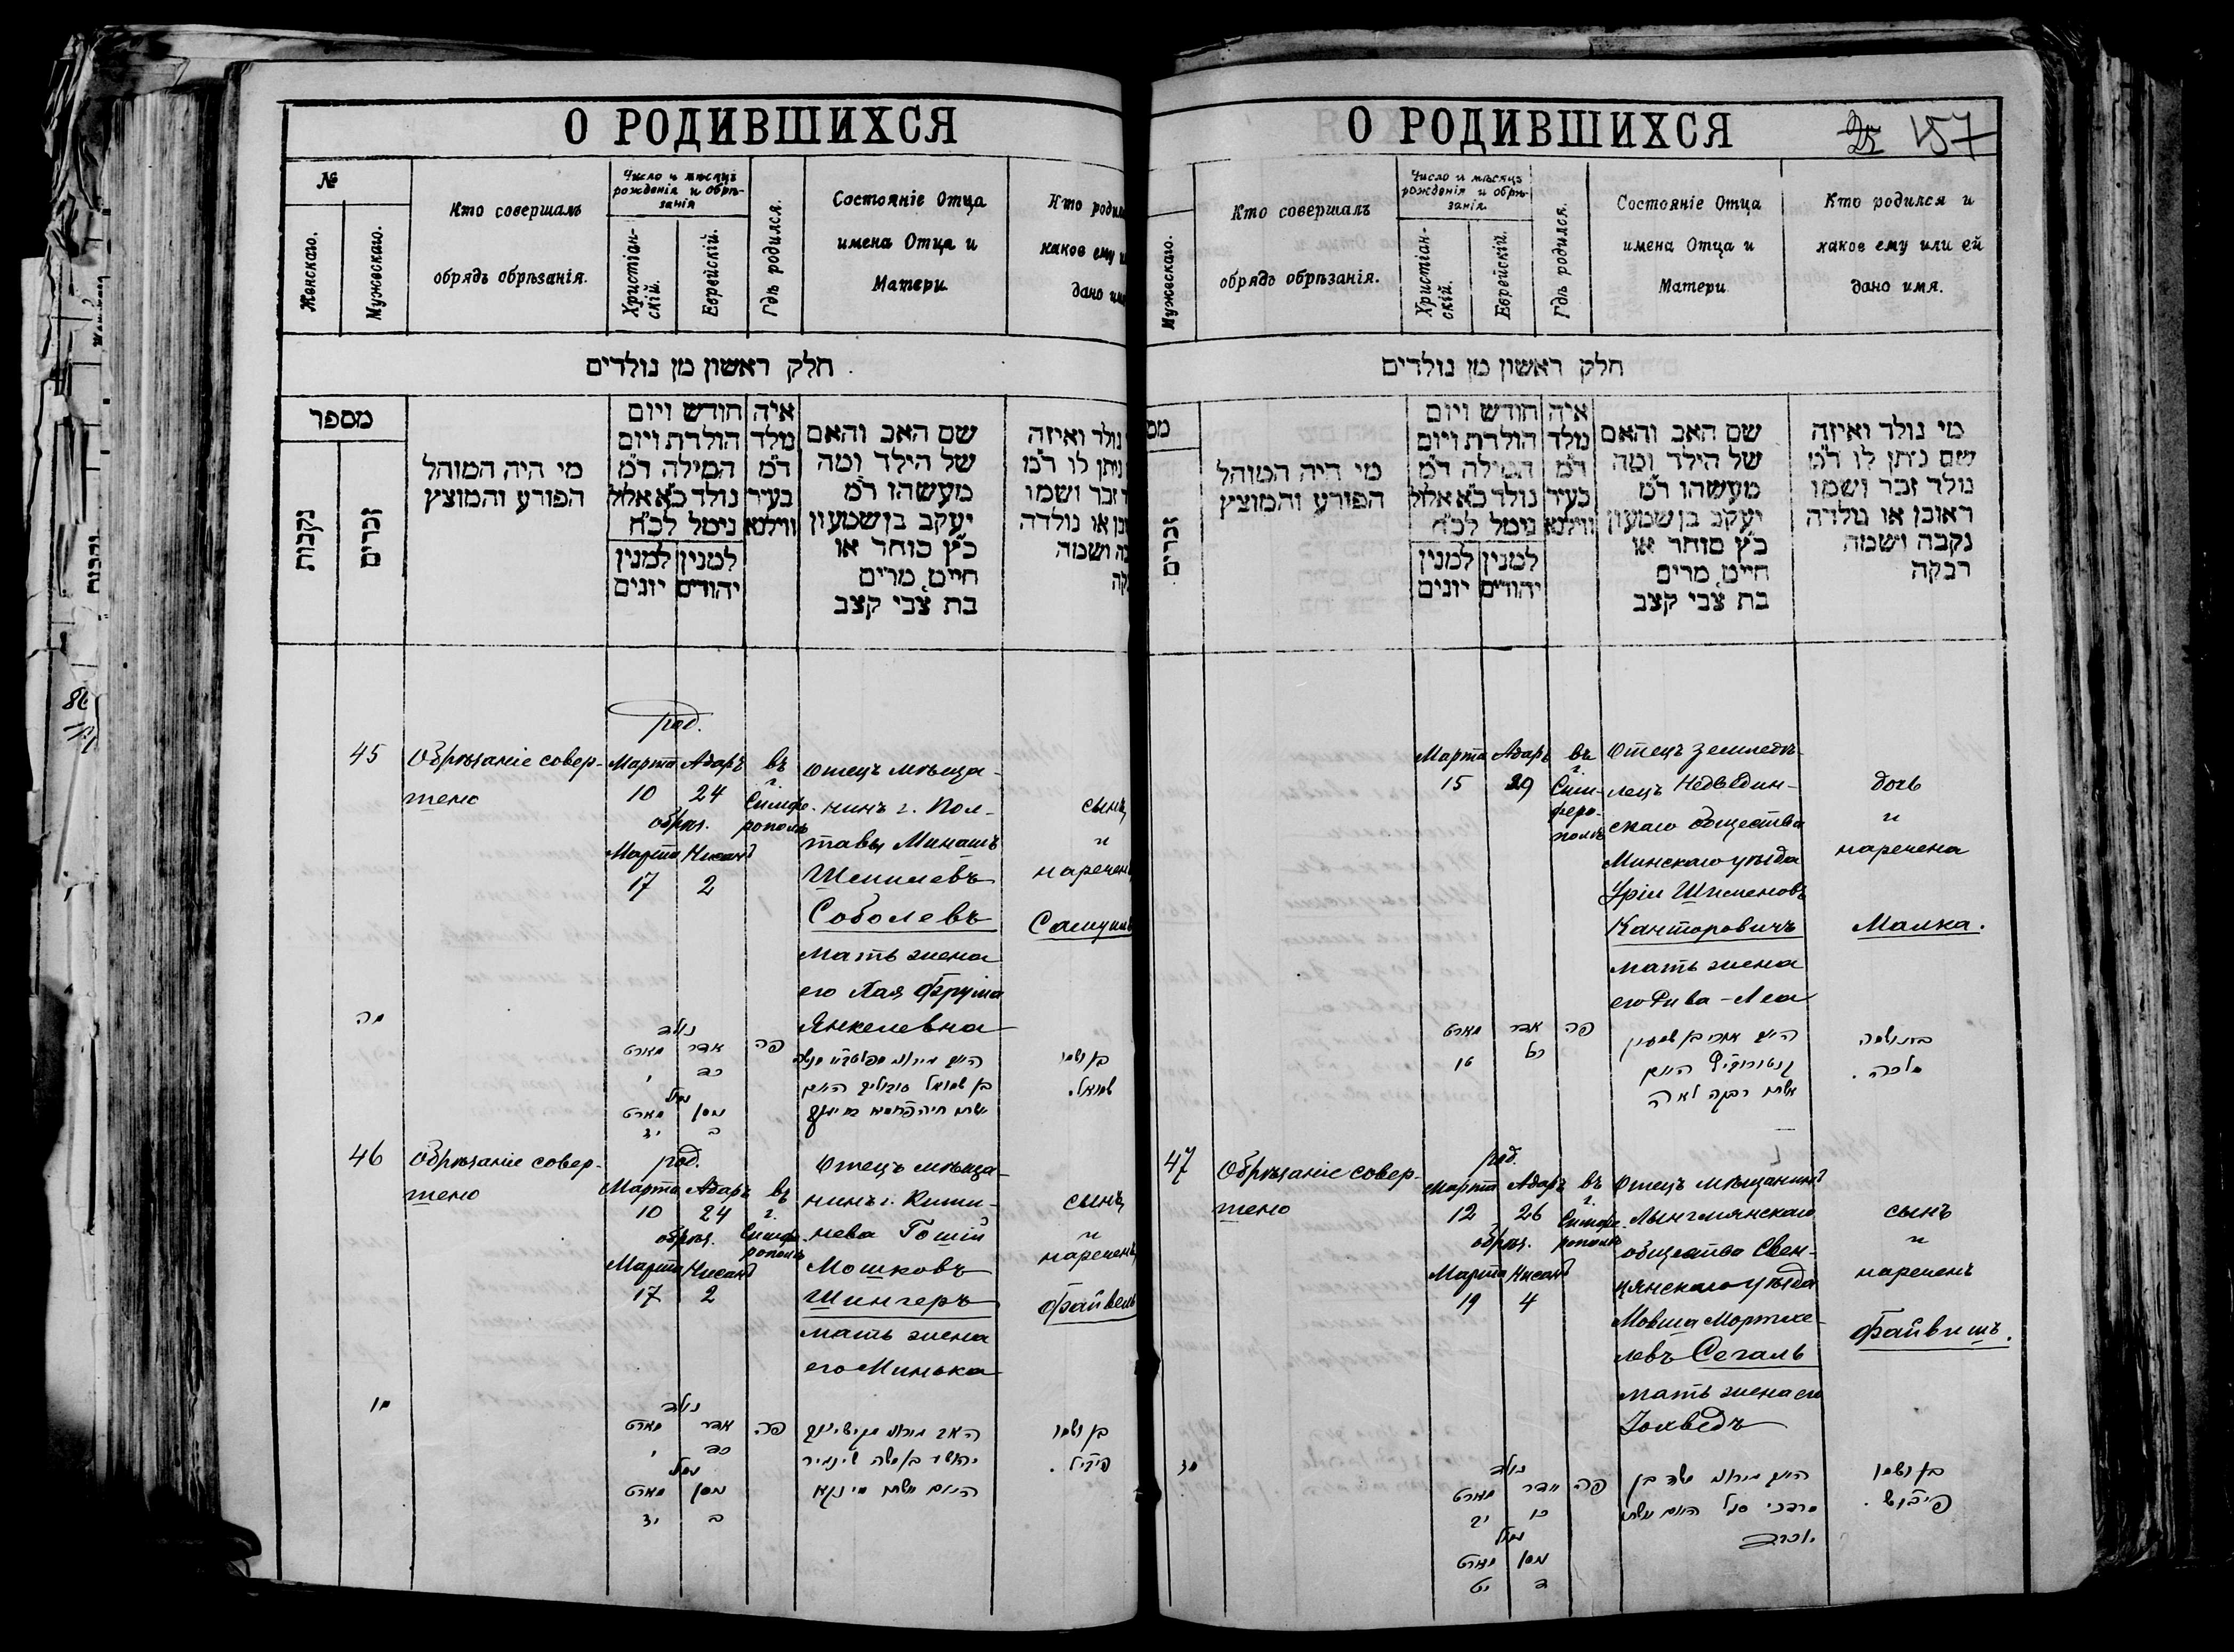 О РОДИВШИХСЯ
№
Женскаго.
Мужескаго.
Кто совершалъ
обрядъ обрѣзанія.
Число и мѣсяцъ
рожденія и обрѣ-
занія
Христіан-
скій.
Еврейскій.
Гдѣ родился.
Состояніе Отца
имена Отца и
Матери
Кто родил
какое ему и
дано им
חלק ראשון מן נולדים
מספר
נקבות
זכרים
מי היה המוהל
הפורע והמוצץ
חודש ויום
הולדת ויום
המילה ד״מ
נולד כ״א אלול
נימל לכ״ח
למנין למנין
יהודים יונים
איה
נולד
ד״מ
בעיר
ווילנא
שם האב והאם
של הילד ומה
מעשהו ד״מ
יעקב בן שמעון
כ״ץ סוחר או
חיים מרים
בת צבי קצב
נולד ואיזה
ניתן לו ד״מ
זכר ושמו
או נולדה
ושמה
45
Обрѣзаніе совер-
шено
род.
Марта Адаръ
10 24
обрѣз.
Марта Нисанъ
17 2
въ
г.
Симфе-
рополѣ
Отецъ мѣща-
нинъ г. Пол-
тавы Минашъ
Шмилевъ
Соболевъ
мать жена
его Хая Фрума
Янкелевна
сынъ
и
нареченъ
Самуилъ
מה
נולד
אדר מארט
כד י
נימול
ניסן מארט
ב יז
פה
בן ושמו
שמואל.
46
Обрѣзаніе совер-
шено
род.
Марта Адаръ
10 24
обрѣз.
Марта Нисанъ
17 2
въ
г.
Симфе-
рополѣ
Отецъ мѣща-
нинъ г. Киши-
нева Гошій
Мошковъ
Шингеръ
мать жена
его Минька
сынъ
и
нареченъ
Файвель
מו
נולד
אדר מארט
כד י
נימול
ניסן מארט
ב יז
פה
יהושע בן משה שינגיר
בן ושמו
פייויל.
О РОДИВШИХСЯ
25 157
Мужескаго.
Кто совершалъ
обрядъ обрѣзанія.
Число и мѣсяцъ
рожденія и обрѣ-
занія.
Христіан-
скій.
Еврейскій.
Гдѣ родился.
Состояніе Отца
имена Отца и
Матери
Кто родился и
какое ему или ей
дано имя.
חלק ראשון מן נולדים
מס
זכרים
מי היה המוהל
הפורע והמוצץ
חודש ויום
הולדת ויום
המילה ד״מ
נולד כ״א אלול
נימל לכ״ח
למנין למנין
יהודים יונים
איה
נולד
ד״מ
בעיר
ווילנא
שם האב והאם
של הילד ומה
מעשהו ד״מ
יעקב בן שמעון
כ״ץ סוחר או
חיים מרים
בת צבי קצב
מי נולד ואיזה
שם ניתן לו ד״מ
נולד זכר ושמו
ראובן או נולדה
נקבה ושמה
רבקה
Марта Адаръ
15 29
въ
г.
Сим-
феро-
полѣ
Отецъ земледѣ-
лецъ Недведин-
скаго общества
Минскаго уѣзда
Уріи Шименовъ
Канторовичъ
мать жена
его Рива-Леа
дочь
и
наречена
Малка.
אדר מארט
כט טו
פה
אשתו רבקה לאה
בת ושמה
מלכה.
47
Обрѣзаніе совер-
шено
род.
Марта Адаръ
12 26
обрѣз.
Марта Нисанъ
19 4
въ
г.
Симфе-
рополѣ
Отецъ мѣщанинъ
Лынгмянскаго
общества Свен-
цянскаго уѣзда
Мовша Мортхе-
левъ Сегаль
мать жена его
Іохведъ
сынъ
и
нареченъ
Файвишъ.
מז
נולד
אדר מארט
כו יב
נימול
ניסן מארט
ד יט
פה
מרדכי סגל
יוכבד
בן ושמו
פייבוש.